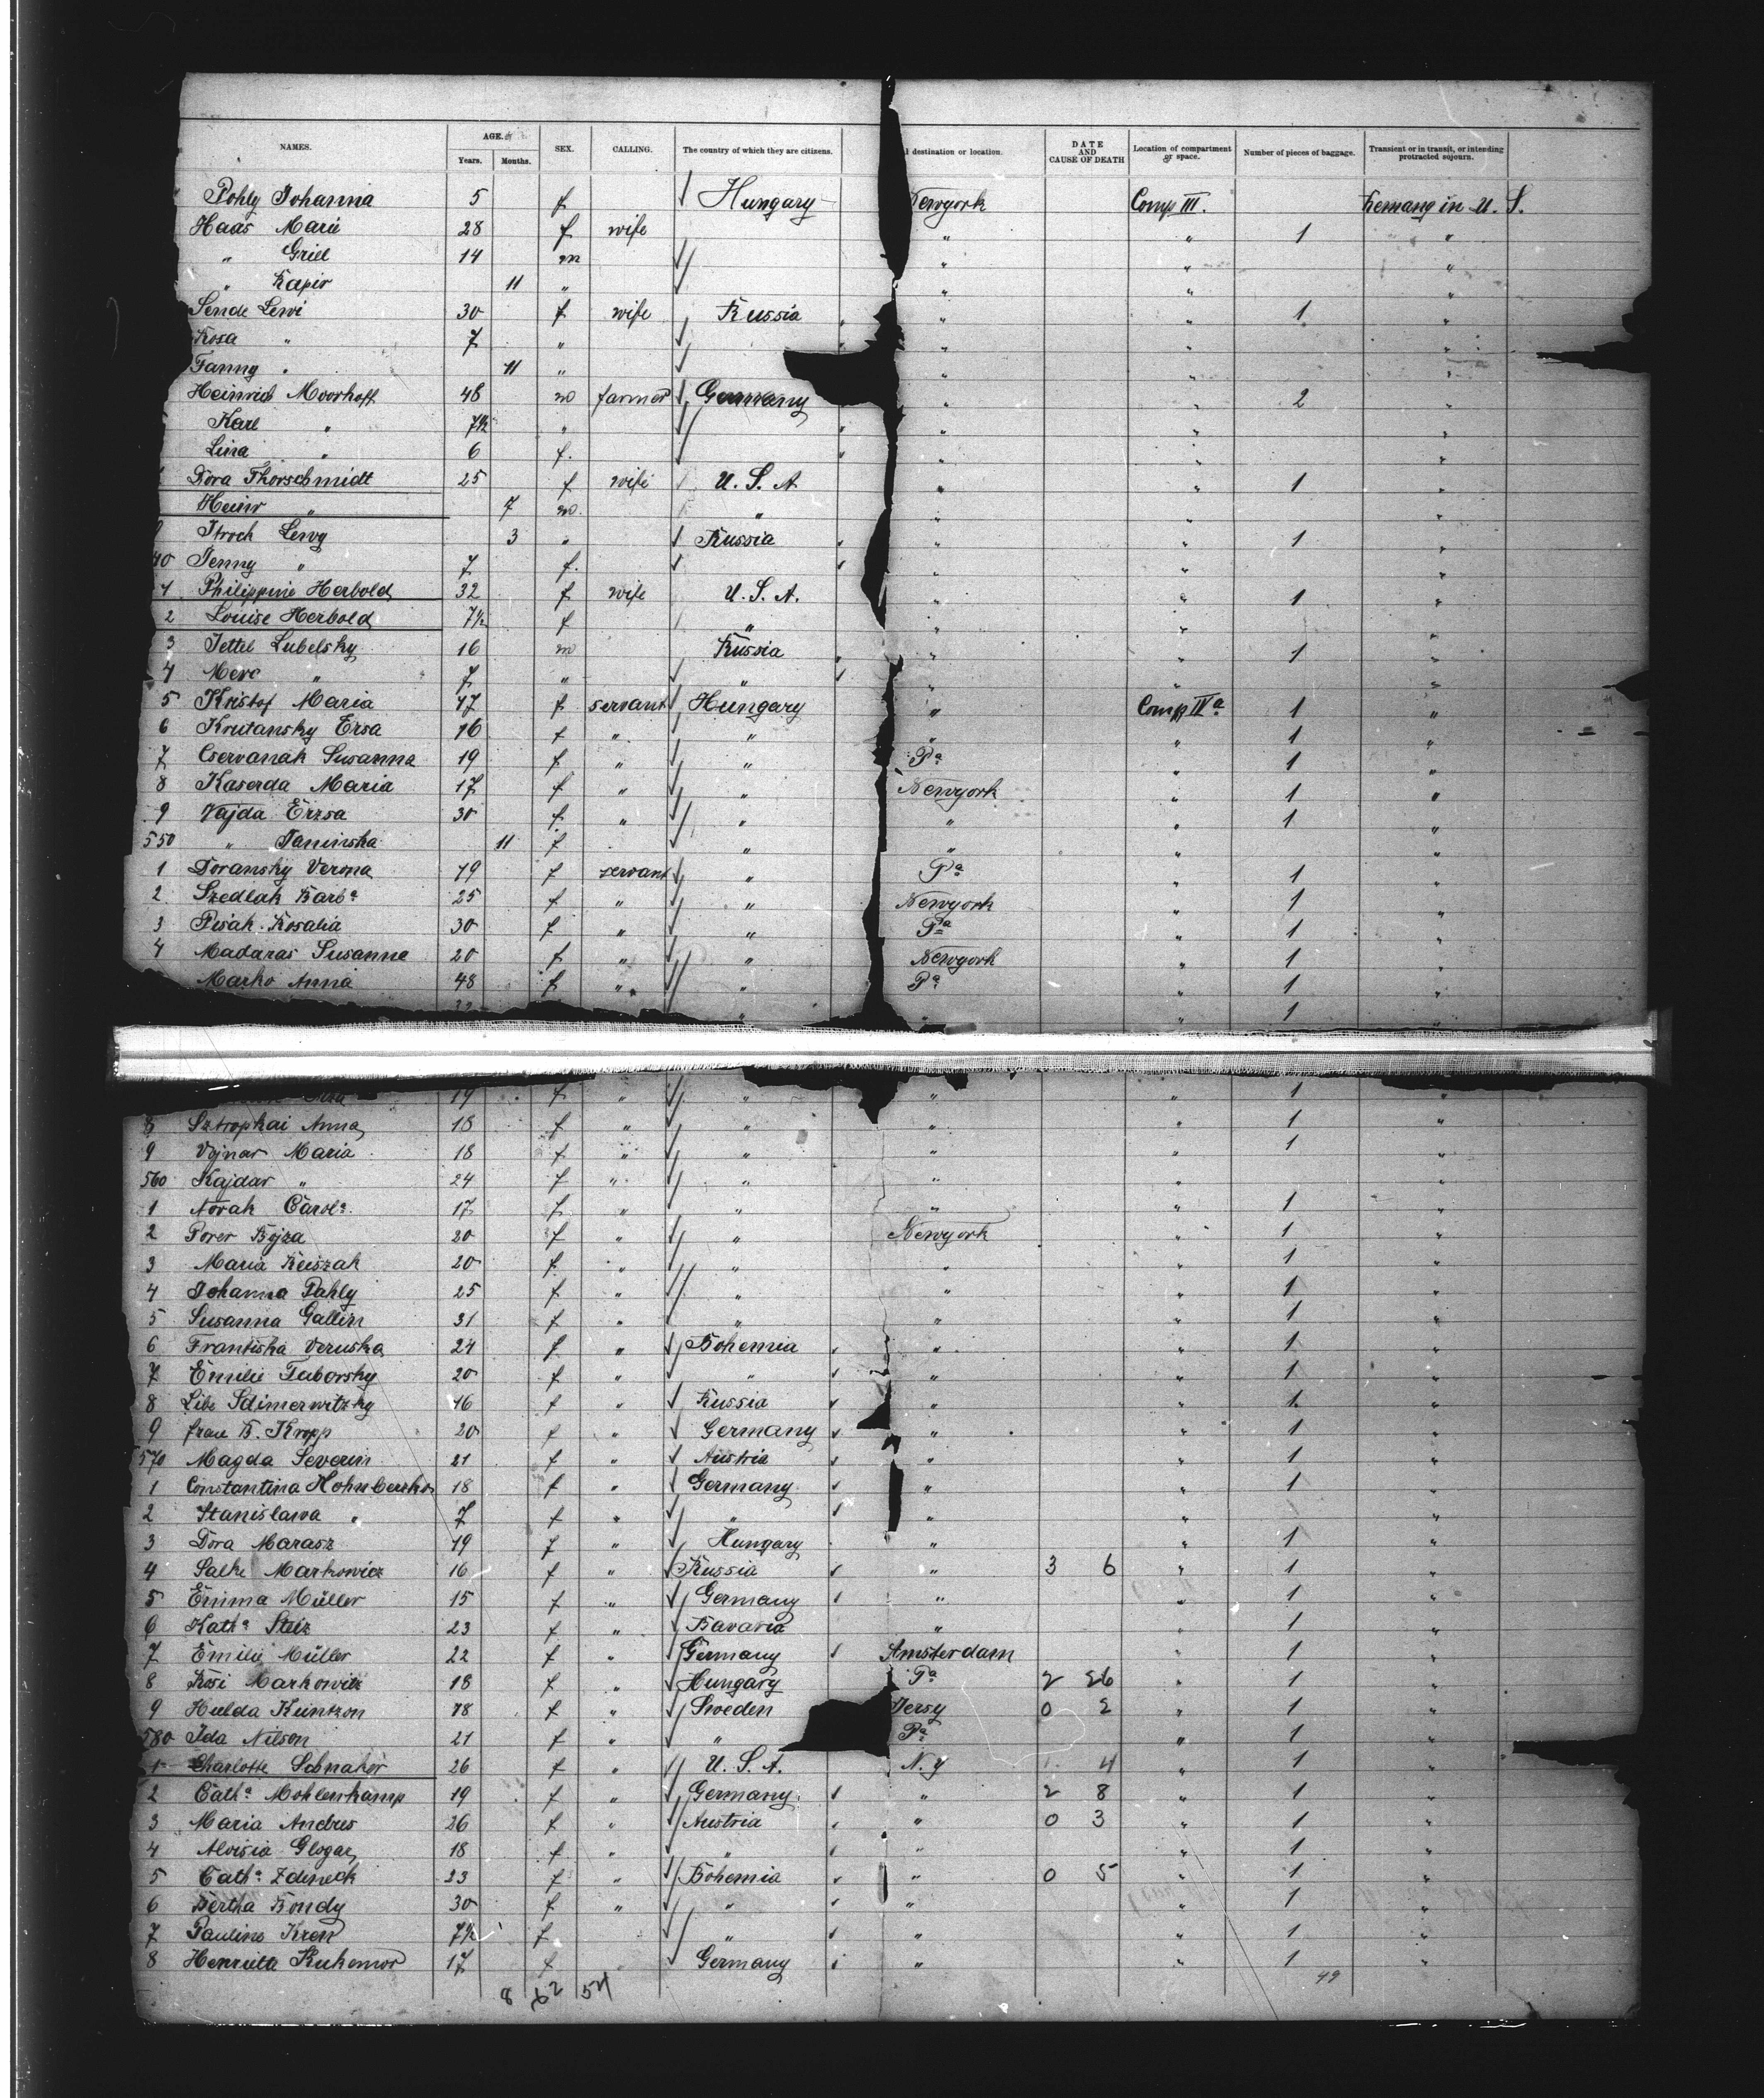 NAMES. AGE. Years. Months. SEX. CALLING. The country of which they are citizens. destination or location. DATE AND CAUSE OF DEATH Location of compartment or space. Number of pieces of baggage. Transient or in transit, or intending protracted sojourn.
Pohly Johanna 5 f Hungary Newyork Comp III. Remang in U. S.
Haas Marie 28 f wife " " 1 "
" 14 m " " "
" 11 " " " "
Sende Lewi 30 f wife Russia " " 1 "
Rosa " 7 " " " "
Fanny " 11 " " " "
Heinrich Moorhoff 48 m farmer Germany " " 2 "
Karl " 7½ " " " "
Lina " 6 f. " " "
Dora Thorschmidt 25 f wife U. S. A. " " 1 "
Heinr " 7 m. " " " "
Lewy 3 " Russia " " 1 "
40 Jenny " 7 f. " " "
1 Philippine Herbold 32 f wife U. S. A. " " 1 "
2 Louise Herbold 7½ f " " " "
3 Jettel Lubelsky 16 m Russia " " 1 "
4 " 7 " " " " "
5 Kristof Maria 47 f servant Hungary " Comp IVa 1 "
6 Krutansky Ersa 16 f " " " " 1 "
7 Cservanak Susanna 19 f " " Pa " 1 "
8 Kaserda Maria 17 f " " Newyork " 1 "
9 Vajda Erzsa 30 f. " " " " 1 "
550 " 11 f " " " "
1 Doransky Verona 19 f servant " Pa " 1 "
2 Szedlak Barba 25 f " " Newyork " 1 "
3 Pisak Rosalia 30 f " " Pa " 1 "
4 Madaras Susanna 20 f " " Newyork " 1 "
Marko Anna 48 f " " Pa " 1 "
" " " 1 "
19 f " " " " 1 "
8 Sztropkai Anna 18 f " " " " 1 "
9 Vojnar Maria 18 f " " " " 1 "
560 Kajdar " 24 f " " " " "
1 Novak Carola 17 f " " " " 1 "
2 Porer 20 f " " Newyork " 1 "
3 Maria Reiszak 20 f " " " " 1 "
4 Johanna Pahly 25 f " " " " 1 "
5 Susanna Gallin 31 f " " " " 1 "
6 Frantiska Veruska 24 f " Bohemia " " 1 "
7 Emilie Taborsky 20 f " " " " 1 "
8 Libe 16 f " Russia " " 1 "
9 frau B. Kropp 20 f " Germany " " 1 "
570 Magda Severin 21 f " Austria " " 1 "
1 Constantina 18 f " Germany " " 1 "
2 Stanislawa " 7 f " " " " "
3 Dora Marasz 19 f " Hungary " " 1 "
4 Salke Markowicz 16 f " Russia " 3 6 " 1 "
5 Emma Müller 15 f " Germany " " 1 "
6 Katha Stelz 23 f " Bavaria " " 1 "
7 Emilie Müller 22 f " Germany Amsterdam " 1 "
8 Rosi Markowitz 18 f " Hungary Pa 2 26 " 1 "
9 Hulda Kuntzon 18 f " Sweden Jersy 0 2 " 1 "
580 Ida Nilson 21 f " " Pa " 1 "
1 Charlotte Schnaker 26 f " U. S. A. N. y 4 " 1 "
2 Catha Mohlenkamp 19 f " Germany " 2 8 " 1 "
3 Maria Andres 26 f " Austria " 0 3 " 1 "
4 Aloisia Glogar 18 f " " " " 1 "
5 Catha Zdeneck 23 f " Bohemia " 0 5 " 1 "
6 Bertha Bondy 30 f " " " " 1 "
7 Pauline Kren 7½ f " " " 1 "
8 Henriette 17 f Germany " " 1 "
8 62 54 49